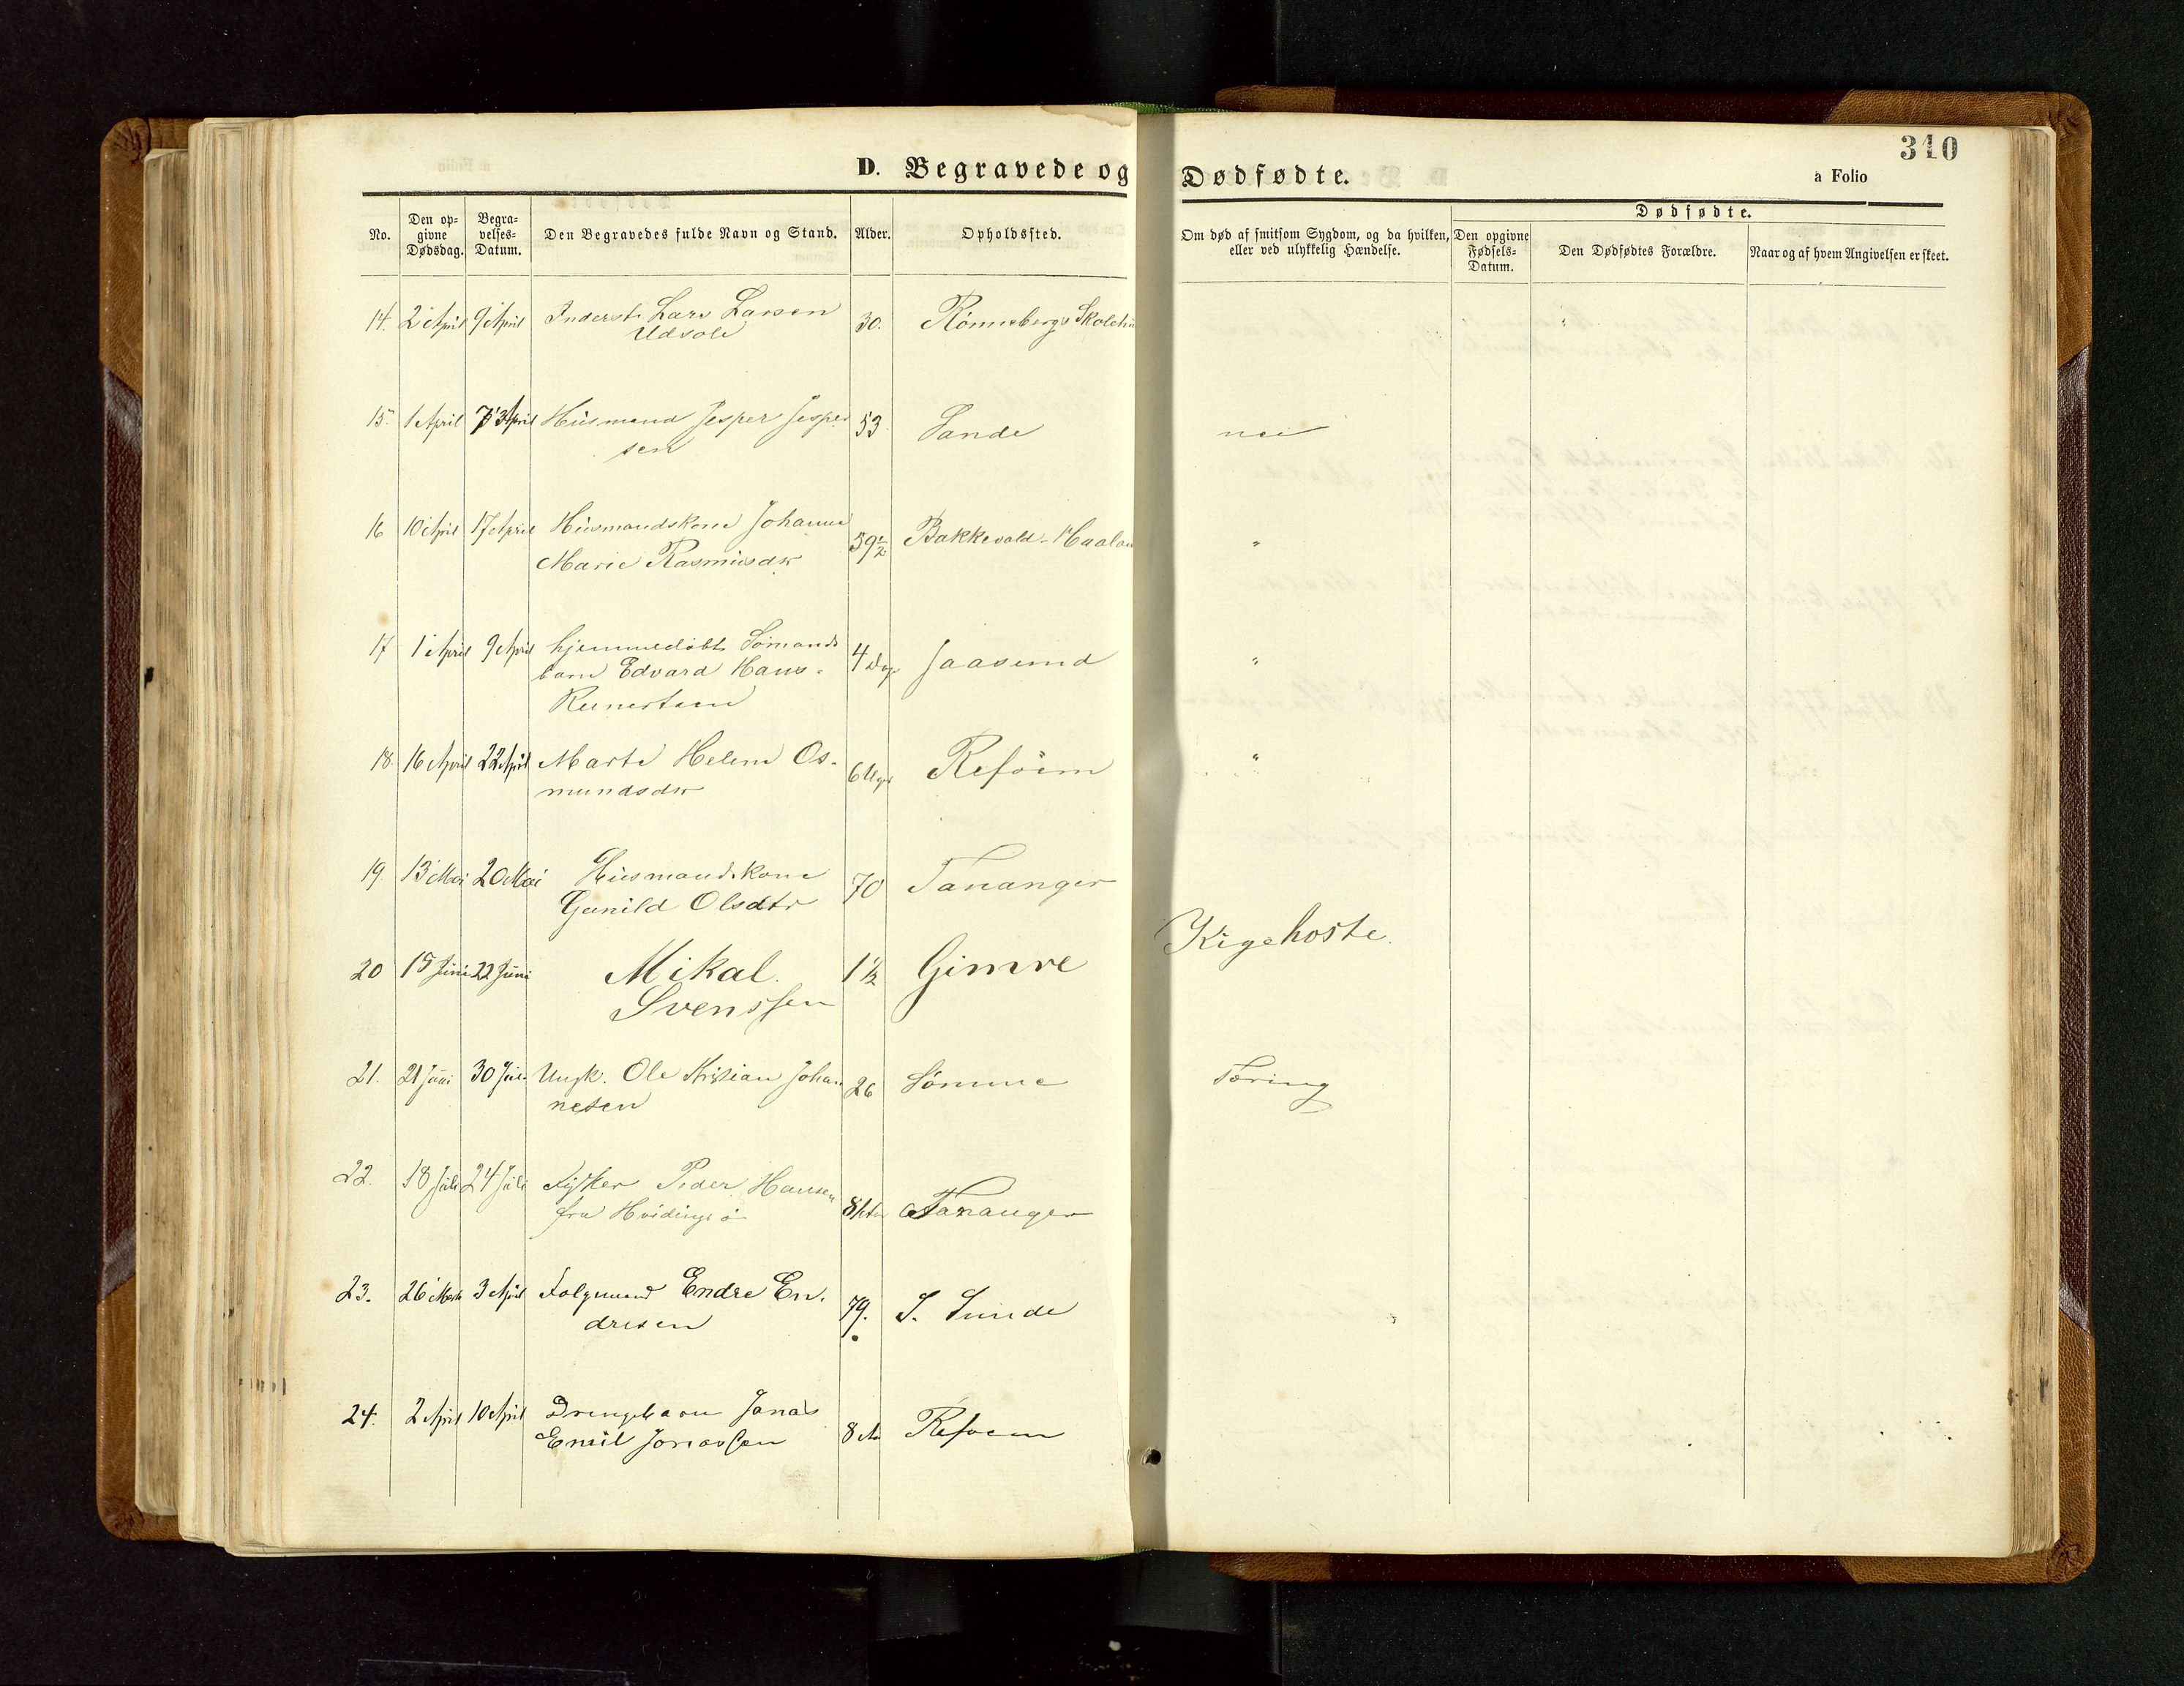 310
D. Begravede og Dødfødte.
a Folio
No.
Den op-
givne
Dødsdag.
Begra-
velses-
Datum.
Den Begravedes fulde Navn og Stand.
Alder.
Opholdssted.
Om død af smitsom Sygdom, og da hvilken,
eller ved ulykkelig Hændelse.
Dødfødte.
Den opgivne
Fødsels-
Datum.
Den Dødfødtes Forældre.
Naar og af hvem Angivelsen er skeet.
14. 2 April 9 April Inderst Lars Larsen 30. Rönnebergs Skolehu
15. 1 April 3 April Husmand Jesper Jesper 53 Sande nei
sen
16 10 April 17 April Husmandskone Johanne 59½ Bakkevold-Haalan "
Marie Rasmusdr
17 1 April 9 April hjemmedöbt Sömands 4 Dage Jaasund "
barn Edvard Hans
18. 16 April 22 April Marte Helene Os- 6 Uger Refsöien "
mundsdr
19. 13 Mai 20 Mai Husmandskone 70 Tananger
Gunild Olsdtr
20 15 Juni 22 Juni Mikal 1½ Gimre Kigehoste.
Svenssen
21. 21 Juni 30 Juni Ungk. Ole Kristian Johan 26 Sömme Tæring
nesen
22. 18 Juli 24 Juli Fisker Peder Hansen Tananger
fra Hvidingsö
23. 26 Marts 3 April Folgemand Endre En- 79. S. Sunde
dresen
24. 2 April 10 April Drengebarn Jonas
Emil Jonassen